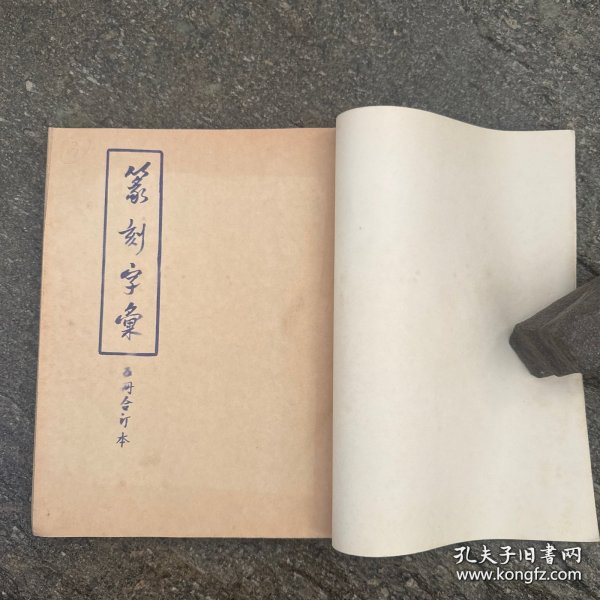 篆刻字彙
五册合订本
孔夫子旧書网
www.kongfz.com